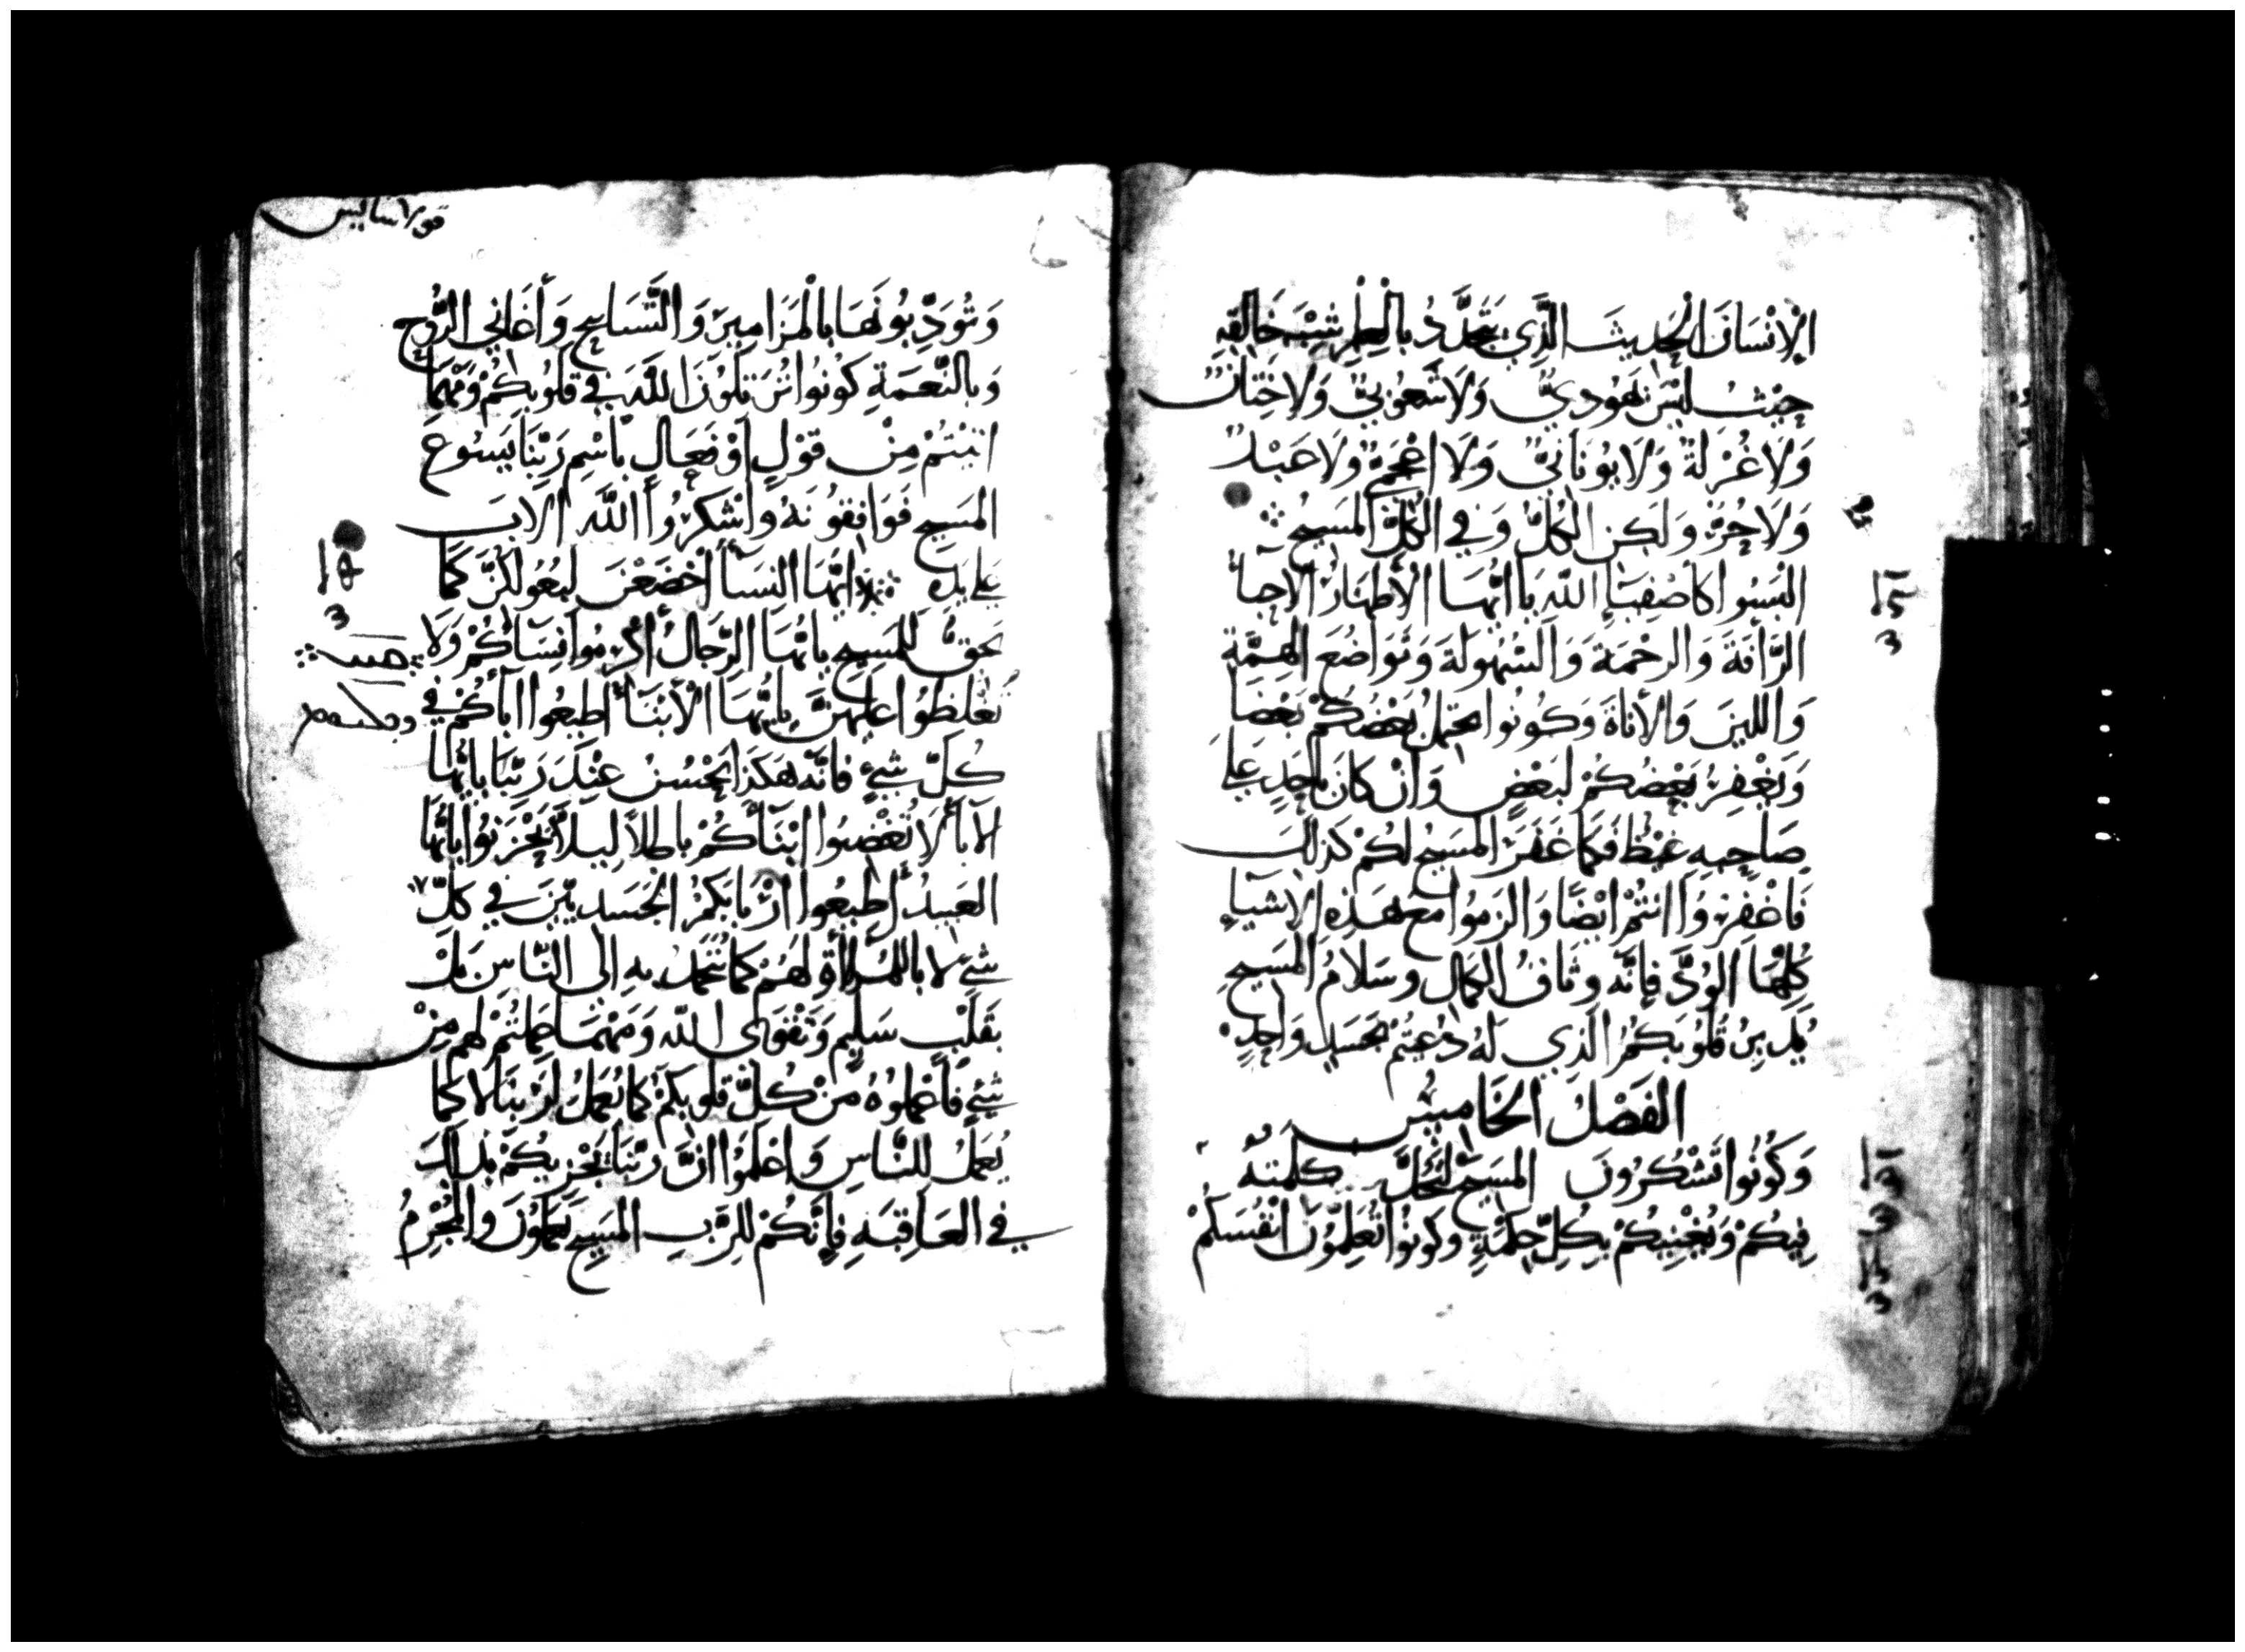 الإنْسَانَ الحَديثَ الَّذِي يَتَجَدَّدُ بالعِلمِ شِبْهَ خَالِقِهِ
حَيْثُ لَيْسَ يَهُودِيٌّ وَلَا شُعُوبيٌّ وَلَا خِتَانٌ
وَلَا غُرْلَةٌ وَلَا يُونَانيٌّ وَلَا اعْجَمِيٌّ وَلَا عَبْدٌ
وَلَا حُرَّةٌ وَلَكِن الْكُلّ وَفي الْكُلّ المَسيحُ
البَسُوا كَأصْفِيَاءِ اللّه يا ايُّهَا الأطهَارُ الاحِبَّاءُ
الرَّأفَةَ وَالرحْمَةَ وَالسُّهُولَةَ وَتَوَاضُعَ الهِمَّةِ
وَاللينَ وَالأنَاةَ وَكُونُوا يحتمِلُ بَعْضُكُمْ بَعْضًا
وَيَغْفِرُ بَعْضُكُمْ لبَعْضٍ وَانْ كَانَ لأحَدٍ عَلَى
صَاحِبِهِ غَيْظٌ فَكَمَا غَفَرَ المَسِيحُ لكُمْ كَذلِكَ
فَاغْفِرُوا انتُمْ ايْضًا وَالزمُوا مَعَ هَذِهِ الاشيَاءِ
كُلِّهَا الوُدَّ فإنَّه وِثَاقُ الكَمَالِ وسَلامُ المَسِيحِ
يُدَبِّرُ قُلُوبَكُمُ الَّذِي لَهُ دُعِيتُمْ بجَسَدٍ وَاحِدٍ
الفَصْلُ الخَامِسُ
وَكُونُوا تَشْكُرُونَ المسِيحَ لتَحُلَّ كلمَتهُ
فِيكُمْ وَتُغْنِيكُمْ بكُلِّ حِكْمَةٍ وكونُوا تُعَلِّمُونَ انفُسَكُمْ
قولاسايس
وَتُؤَدِّبُونَهَا بالمَزَاميرِ وَالتَّسَابيحِ وَأغَاني الرُّوحِ
وَبالنّعمَةِ كُونُوا تُرَتِّلُونَ اللّهَ في قلُوبكُمْ وَمَهْمَا
اتَيْتُمْ مِنْ قَوْلٍ اوْ فَعَالٍ بأسْمِ رَبِّنَا يَسُوعَ
المَسيحِ فَوَافِقُونَهُ وأشْكُرُوا اللّه الابَ
عَلى يدِهِ ايَّهَا النسَاءُ اخْضَعْنَ لبُعُولِكُنَّ كَمَا
يحقُّ للمَسِيحِ يا يُّهَا الرِّجَالُ أكْرِمُوا نِسَاكُمْ وَلَا
تَغْلُظُوا عَليْهِنَّ يا يُّهَا الأبْنَاءُ اطِيعُوا ابَاكُمْ في
كُلّ شيْءٍ فانَّه هَكَذا يحْسُنُ عِنْدَ رَبِّنَا يا يُّهَا
الآباءُ لَا تُغْضِبُوا ابْنَاكُمْ باطلاً ليَلاَّ يَحْزَنُوا يا يُّهَا
العَبيدُ أطِيعُوا ارْبَابَكُمُ الجَسَديّينَ في كلّ
شيءٍ لا بالمُراأةِ لهُمْ كمَا تُتَجَمَّلُ به إلى النَّاسِ بَلْ
بقَلْبٍ سَلِيمٍ وَتَقْوَى اللّه وَمَهْمَا عَمِلتُمْ لهم مِنْ
شيْءٍ فاعْمَلُوهُ مِنْ كُلّ قلُوبكُمْ كَما يُعْمَلُ لرَبِّنَا لَا كَما
يُعْمَلُ للنَّاسِ وَاعْلَمُوا انَّ رَبَّنَا يَجْزِيكُمْ بذلكَ
في العَاقِبَةِ فإنَّكُمْ للرَّبِ المَسِيحِ تَعمَلُونَ والمُجْرِمُ